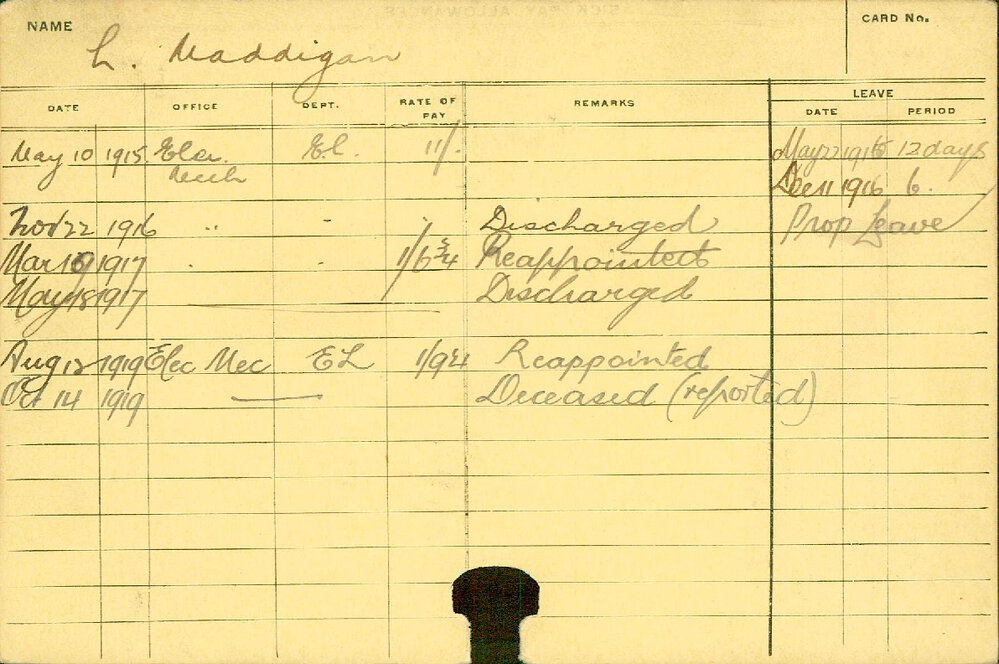 NAME
L. Maddigan
CARD No.
DATE OFFICE DEPT. RATE OF PAY REMARKS LEAVE
DATE PERIOD
May 10 1915 Elec. El. 11/. May 22 1916 12 days
Mech Dec 11 1916 6.
Nov 22 1916 " - " Discharged Prop Leave
Mar 19 1917 . . 1/6 3/4 Reappointed
May 18 1917 Discharged
Aug 12 1919 Elec Mec EL 1/9 Reappointed
Oct 14 1919 — Deceased (reported)